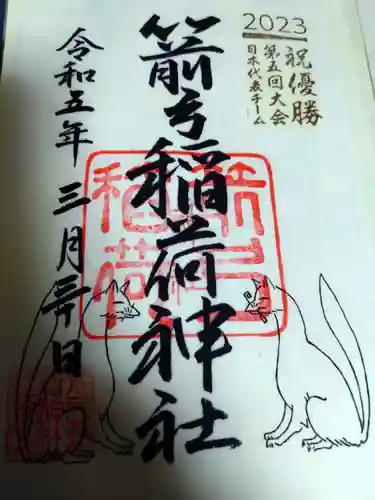 2023
祝優勝
第五回大会
日本代表チーム
箭弓稲荷神社
令和五年 三月三十日
箭弓稲荷